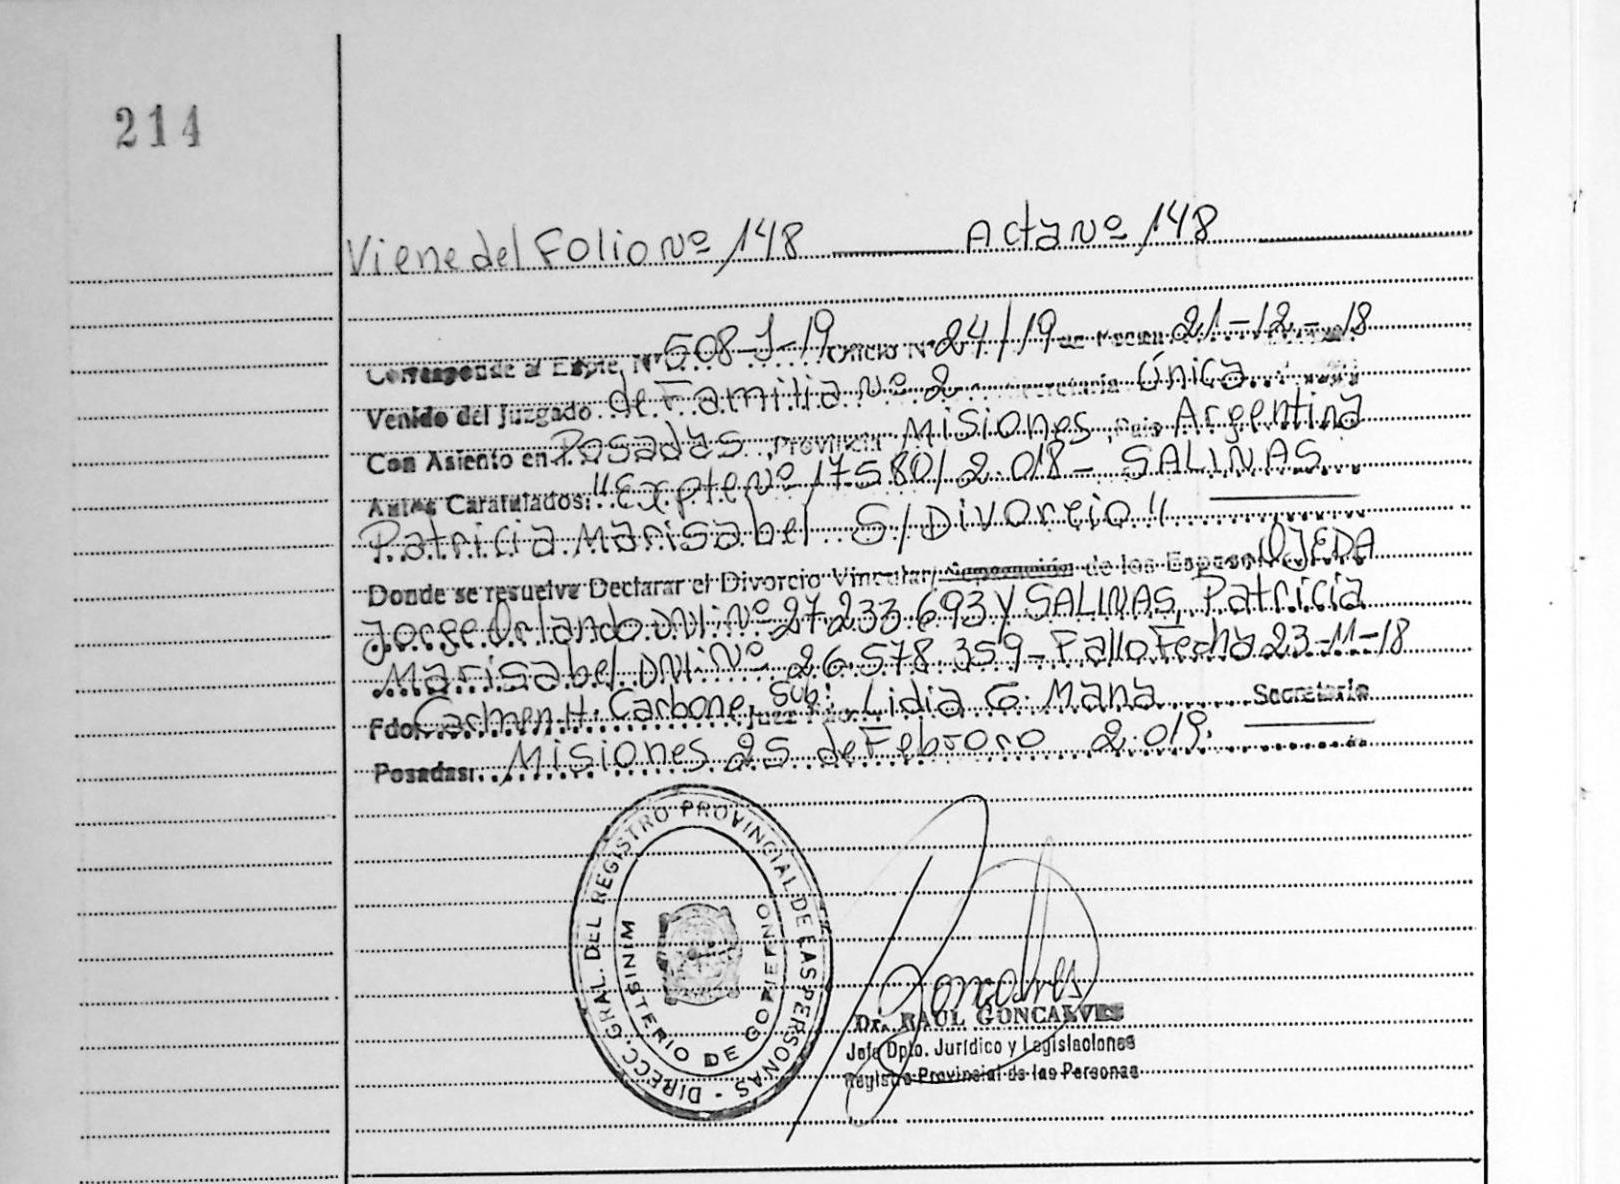 214
Viene del Folio Nº 148 Acta Nº 148
Corresponde al Expte. Nº 508-J-19 Oficio Nº 24/19 de Fecha 21-12-18
Venido del Juzgado de Familia Nº 2 Secretaría Única
Con Asiento en Posadas, Provincia Misiones, País Argentina
Autos Caratulados: "Expte Nº 17580/2.018- SALINAS
Patricia Marisabel S/Divorcio"
Donde se resuelve Declarar el Divorcio Vincular/Separación de los Esposos OJEDA
Jorge Orlando DNI Nº 27.233.693 Y SALINAS, Patricia
Marisabel DNI Nº 26.578.359- Fallo Fecha 23-11-18
Fdo. Carmen H. Carbone, Juez Sub: Lidia G. Mana Secretaria
Posadas: Misiones 25 de Febrero 2.019.
DIRECC. GRAL. DEL REGISTRO PROVINCIAL DE LAS PERSONAS -
MINISTERIO DE GOBIERNO
Goncalves
Dr. RAUL GONCALVES
Jefe Dpto. Jurídico y Legislaciones
Registro Provincial de las Personas